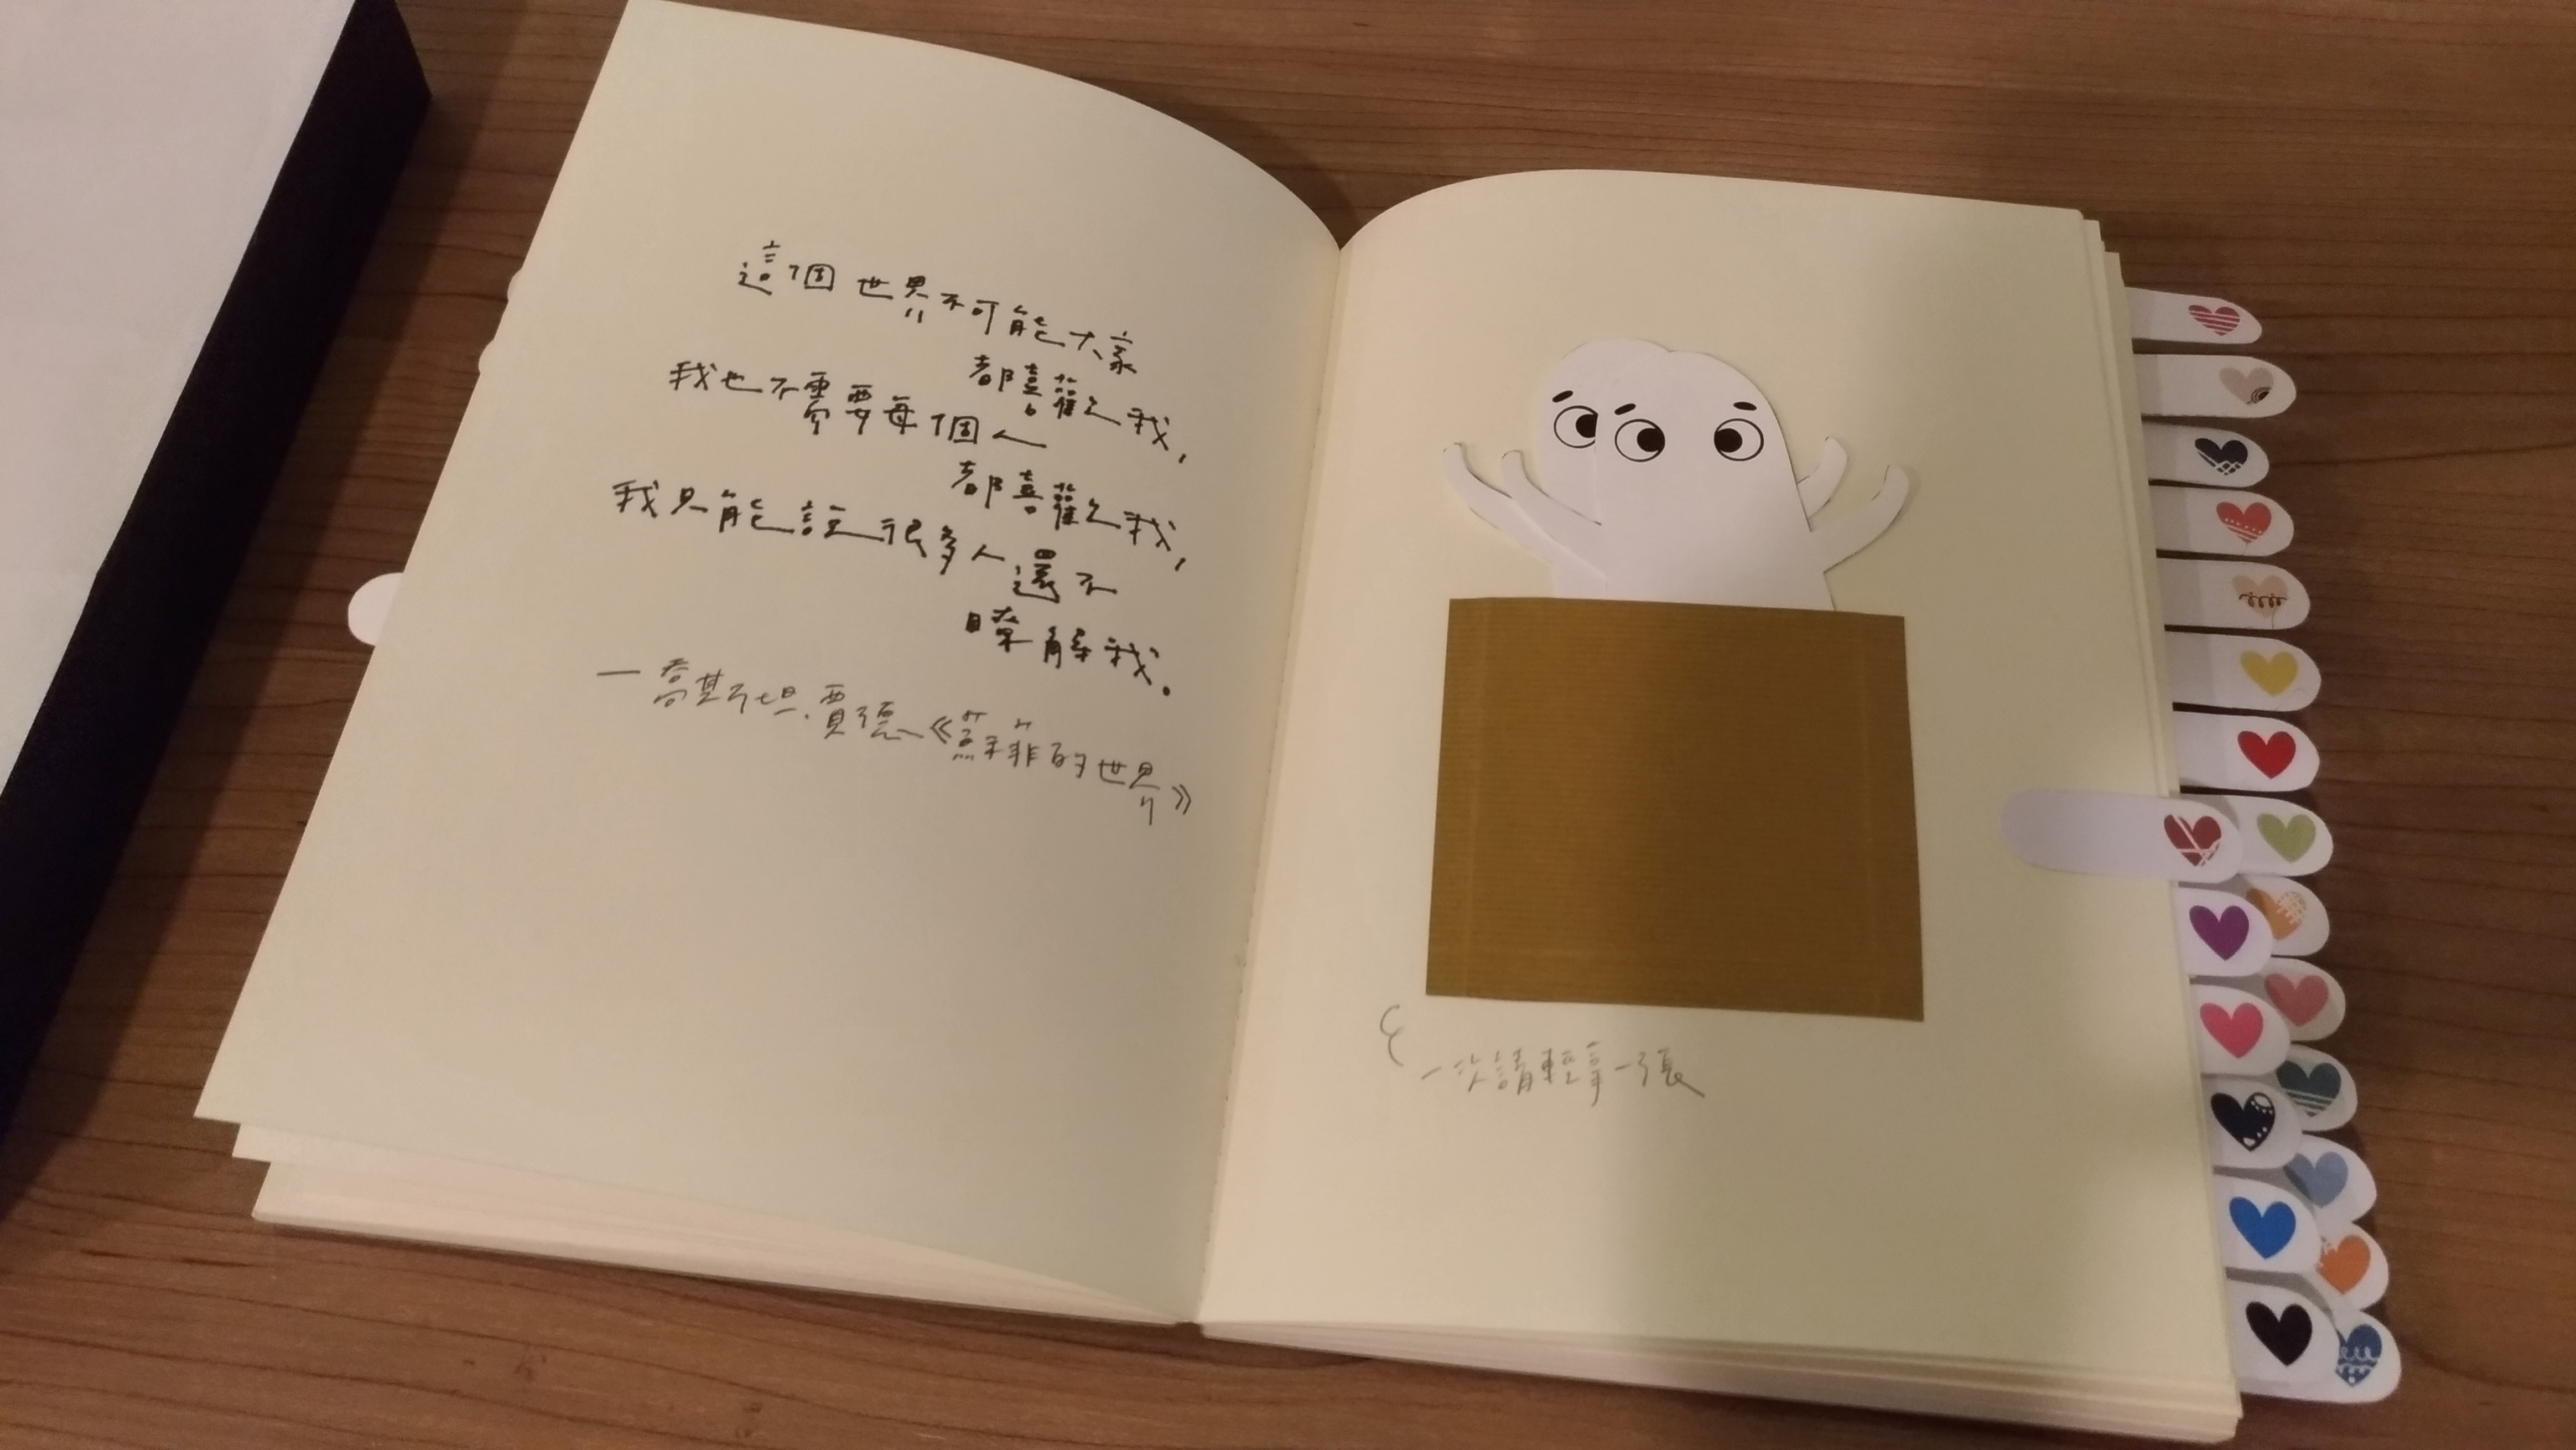 這個世界不可能大家
都喜歡我，
我也不需要每個人
都喜歡我，
我只能說很多人還不
瞭解我。
— 喬斯坦．賈德《蘇菲的世界》
一次請輕拿一張